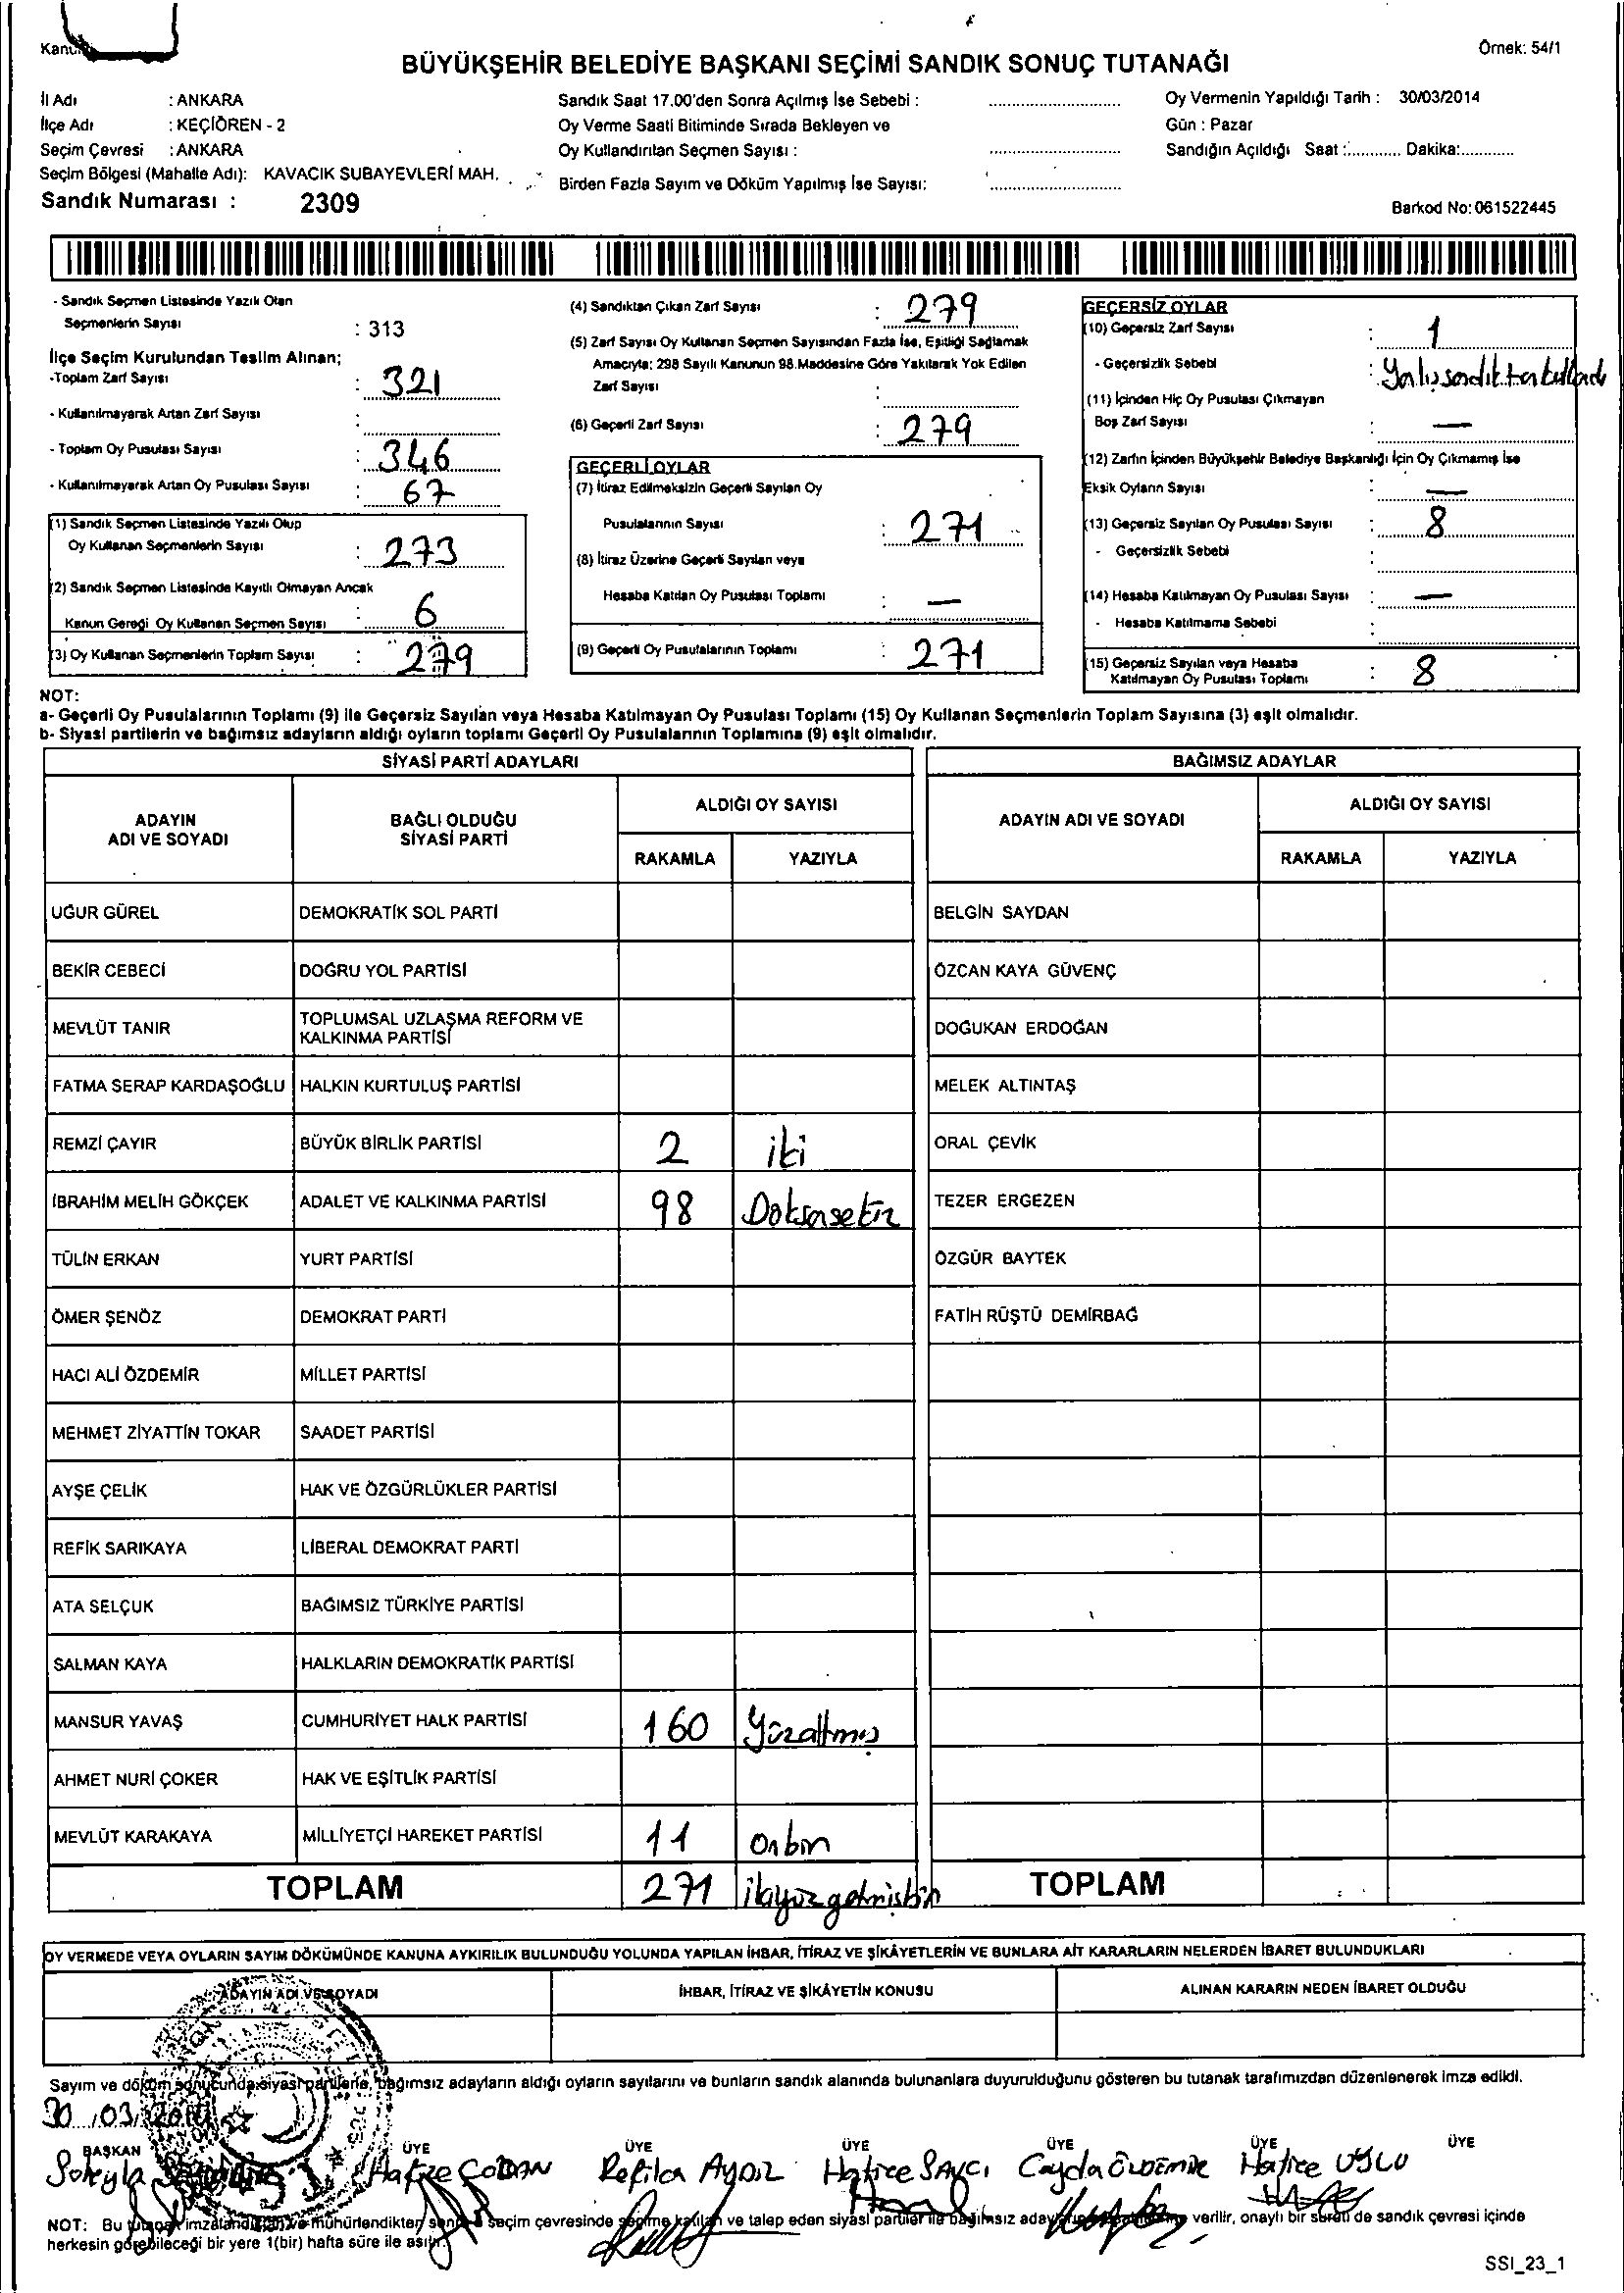 Örnek: 54/1
BÜYÜKŞEHİR BELEDİYE BAŞKANI SEÇİMİ SANDIK SONUÇ TUTANAĞI
İl Adı : ANKARA
İlçe Adı : KEÇİÖREN - 2
Seçim Çevresi : ANKARA
Seçim Bölgesi (Mahalle Adı): KAVACIK SUBAYEVLERİ MAH.
Sandık Numarası : 2309
Sandık Saat 17.00'den Sonra Açılmış İse Sebebi :
Oy Verme Saati Bitiminde Sırada Bekleyen ve
Oy Kullandırılan Seçmen Sayısı :
Birden Fazla Sayım ve Döküm Yapılmış İse Sayısı:
Oy Vermenin Yapıldığı Tarih : 30/03/2014
Gün : Pazar
Sandığın Açıldığı Saat :............ Dakika:............
Barkod No: 061522445
- Sandık Seçmen Listesinde Yazılı Olan
Seçmenlerin Sayısı : 313
İlçe Seçim Kurulundan Teslim Alınan;
-Toplam Zarf Sayısı : 321
- Kullanılmayarak Artan Zarf Sayısı :
- Toplam Oy Pusulası Sayısı : 346
- Kullanılmayarak Artan Oy Pusulası Sayısı : 67
(1) Sandık Seçmen Listesinde Yazılı Olup
Oy Kullanan Seçmenlerin Sayısı : 273
(2) Sandık Seçmen Listesinde Kayıtlı Olmayan Ancak
Kanun Gereği Oy Kullanan Seçmen Sayısı : 6
(3) Oy Kullanan Seçmenlerin Toplam Sayısı : 279
(4) Sandıktan Çıkan Zarf Sayısı : 279
(5) Zarf Sayısı Oy Kullanan Seçmen Sayısından Fazla İse, Eşitliği Sağlamak
Amacıyla: 298 Sayılı Kanunun 98.Maddesine Göre Yakılarak Yok Edilen
Zarf Sayısı :
(6) Geçerli Zarf Sayısı : 279
GEÇERLİ OYLAR
(7) İtiraz Edilmeksizin Geçerli Sayılan Oy
Pusulalarının Sayısı : 271
(8) İtiraz Üzerine Geçerli Sayılan veya
Hesaba Katılan Oy Pusulası Toplamı : —
(9) Geçerli Oy Pusulalarının Toplamı : 271
GEÇERSİZ OYLAR
(10) Geçersiz Zarf Sayısı : 1
- Geçersizlik Sebebi :
(11) İçinden Hiç Oy Pusulası Çıkmayan
Boş Zarf Sayısı : —
(12) Zarfın İçinden Büyükşehir Belediye Başkanlığı İçin Oy Çıkmamış İse
Eksik Oyların Sayısı : —
(13) Geçersiz Sayılan Oy Pusulası Sayısı : 8
- Geçersizlik Sebebi :
(14) Hesaba Katılmayan Oy Pusulası Sayısı : —
- Hesaba Katılmama Sebebi :
(15) Geçersiz Sayılan veya Hesaba
Katılmayan Oy Pusulası Toplamı : 8
NOT:
a- Geçerli Oy Pusulalarının Toplamı (9) ile Geçersiz Sayılan veya Hesaba Katılmayan Oy Pusulası Toplamı (15) Oy Kullanan Seçmenlerin Toplam Sayısına (3) eşit olmalıdır.
b- Siyasi partilerin ve bağımsız adayların aldığı oyların toplamı Geçerli Oy Pusulalarının Toplamına (9) eşit olmalıdır.
SİYASİ PARTİ ADAYLARI
ADAYIN ADI VE SOYADI BAĞLI OLDUĞU SİYASİ PARTİ ALDIĞI OY SAYISI
RAKAMLA YAZIYLA
UĞUR GÜREL DEMOKRATİK SOL PARTİ
BEKİR CEBECİ DOĞRU YOL PARTİSİ
MEVLÜT TANIR TOPLUMSAL UZLAŞMA REFORM VE KALKINMA PARTİSİ
FATMA SERAP KARDAŞOĞLU HALKIN KURTULUŞ PARTİSİ
REMZİ ÇAYIR BÜYÜK BİRLİK PARTİSİ 2 iki
İBRAHİM MELİH GÖKÇEK ADALET VE KALKINMA PARTİSİ 98 Doksansekiz
TÜLİN ERKAN YURT PARTİSİ
ÖMER ŞENÖZ DEMOKRAT PARTİ
HACI ALİ ÖZDEMİR MİLLET PARTİSİ
MEHMET ZİYATTİN TOKAR SAADET PARTİSİ
AYŞE ÇELİK HAK VE ÖZGÜRLÜKLER PARTİSİ
REFİK SARIKAYA LİBERAL DEMOKRAT PARTİ
ATA SELÇUK BAĞIMSIZ TÜRKİYE PARTİSİ
SALMAN KAYA HALKLARIN DEMOKRATİK PARTİSİ
MANSUR YAVAŞ CUMHURİYET HALK PARTİSİ 160 Yüzaltmış
AHMET NURİ ÇOKER HAK VE EŞİTLİK PARTİSİ
MEVLÜT KARAKAYA MİLLİYETÇİ HAREKET PARTİSİ 11 Onbir
TOPLAM 271 ikiyüzyetmişbir
BAĞIMSIZ ADAYLAR
ADAYIN ADI VE SOYADI ALDIĞI OY SAYISI
RAKAMLA YAZIYLA
BELGİN SAYDAN
ÖZCAN KAYA GÜVENÇ
DOĞUKAN ERDOĞAN
MELEK ALTINTAŞ
ORAL ÇEVİK
TEZER ERGEZEN
ÖZGÜR BAYTEK
FATİH RÜŞTÜ DEMİRBAĞ
TOPLAM
OY VERMEDE VEYA OYLARIN SAYIM DÖKÜMÜNDE KANUNA AYKIRILIK BULUNDUĞU YOLUNDA YAPILAN İHBAR, İTİRAZ VE ŞİKÂYETLERİN VE BUNLARA AİT KARARLARIN NELERDEN İBARET BULUNDUKLARI
ADAYIN ADI VE SOYADI İHBAR, İTİRAZ VE ŞİKÂYETİN KONUSU ALINAN KARARIN NEDEN İBARET OLDUĞU
Sayım ve döküm sonucunda siyasi partilerle, bağımsız adayların aldığı oyların sayılarını ve bunların sandık alanında bulunanlara duyurulduğunu gösteren bu tutanak tarafımızdan düzenlenerek imza edildi.
30/03/2014
BAŞKAN ÜYE ÜYE ÜYE ÜYE ÜYE ÜYE
Hatice SAVCI Cayda ÖZDEMİR Hatice USLU
NOT: Bu tutanak imzalandıktan ve mühürlendikten sonra seçim çevresinde seçime katılan ve talep eden siyasi partiler ile bağımsız verilir, onaylı bir sureti de sandık çevresi içinde
herkesin görebileceği bir yere 1(bir) hafta süre ile asılır.
SSI_23_1